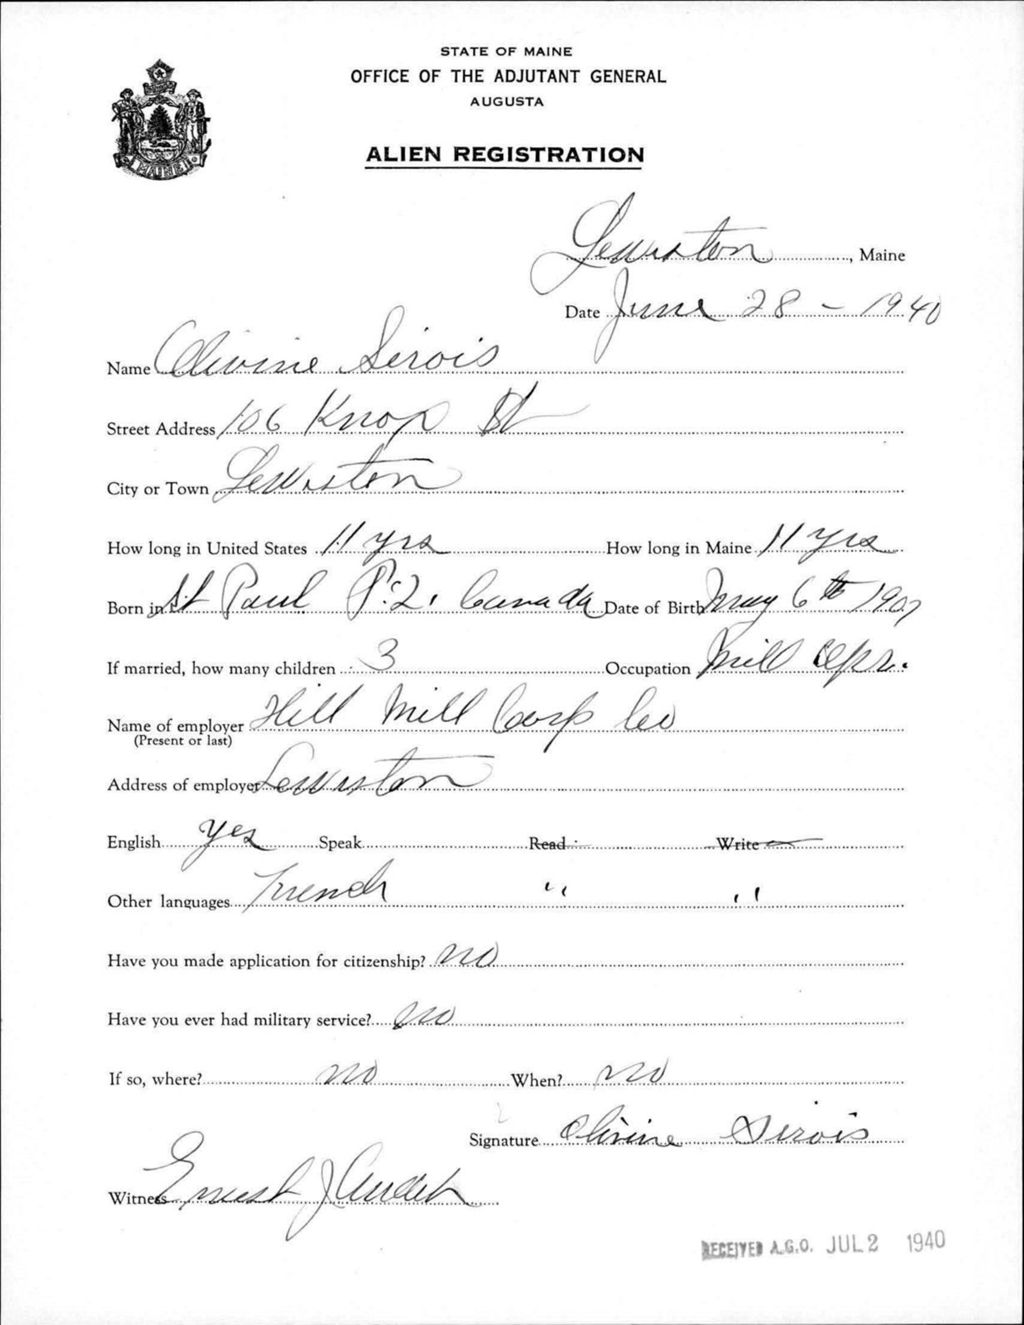 STATE OF MAINE
OFFICE OF THE ADJUTANT GENERAL
AUGUSTA
MAINE
ALIEN REGISTRATION
Lewiston, Maine
Date June 28 - 1940
Name Olivine Sirois
Street Address 106 Knox St
City or Town Lewiston
How long in United States 11 yrs How long in Maine 11 yrs
Born in St Paul P.Q. Canada Date of Birth May 6th 1907
If married, how many children 3 Occupation Mill Opr.
Name of employer Hill Mill Corp Co
(Present or last)
Address of employer Lewiston
English Yes Speak Read Write
Other languages French " "
Have you made application for citizenship? no
Have you ever had military service? no
If so, where? no When? no
Signature Olivine Sirois
Witness Ernest J Audet
RECEIVED A.G.O. JUL 2 1940